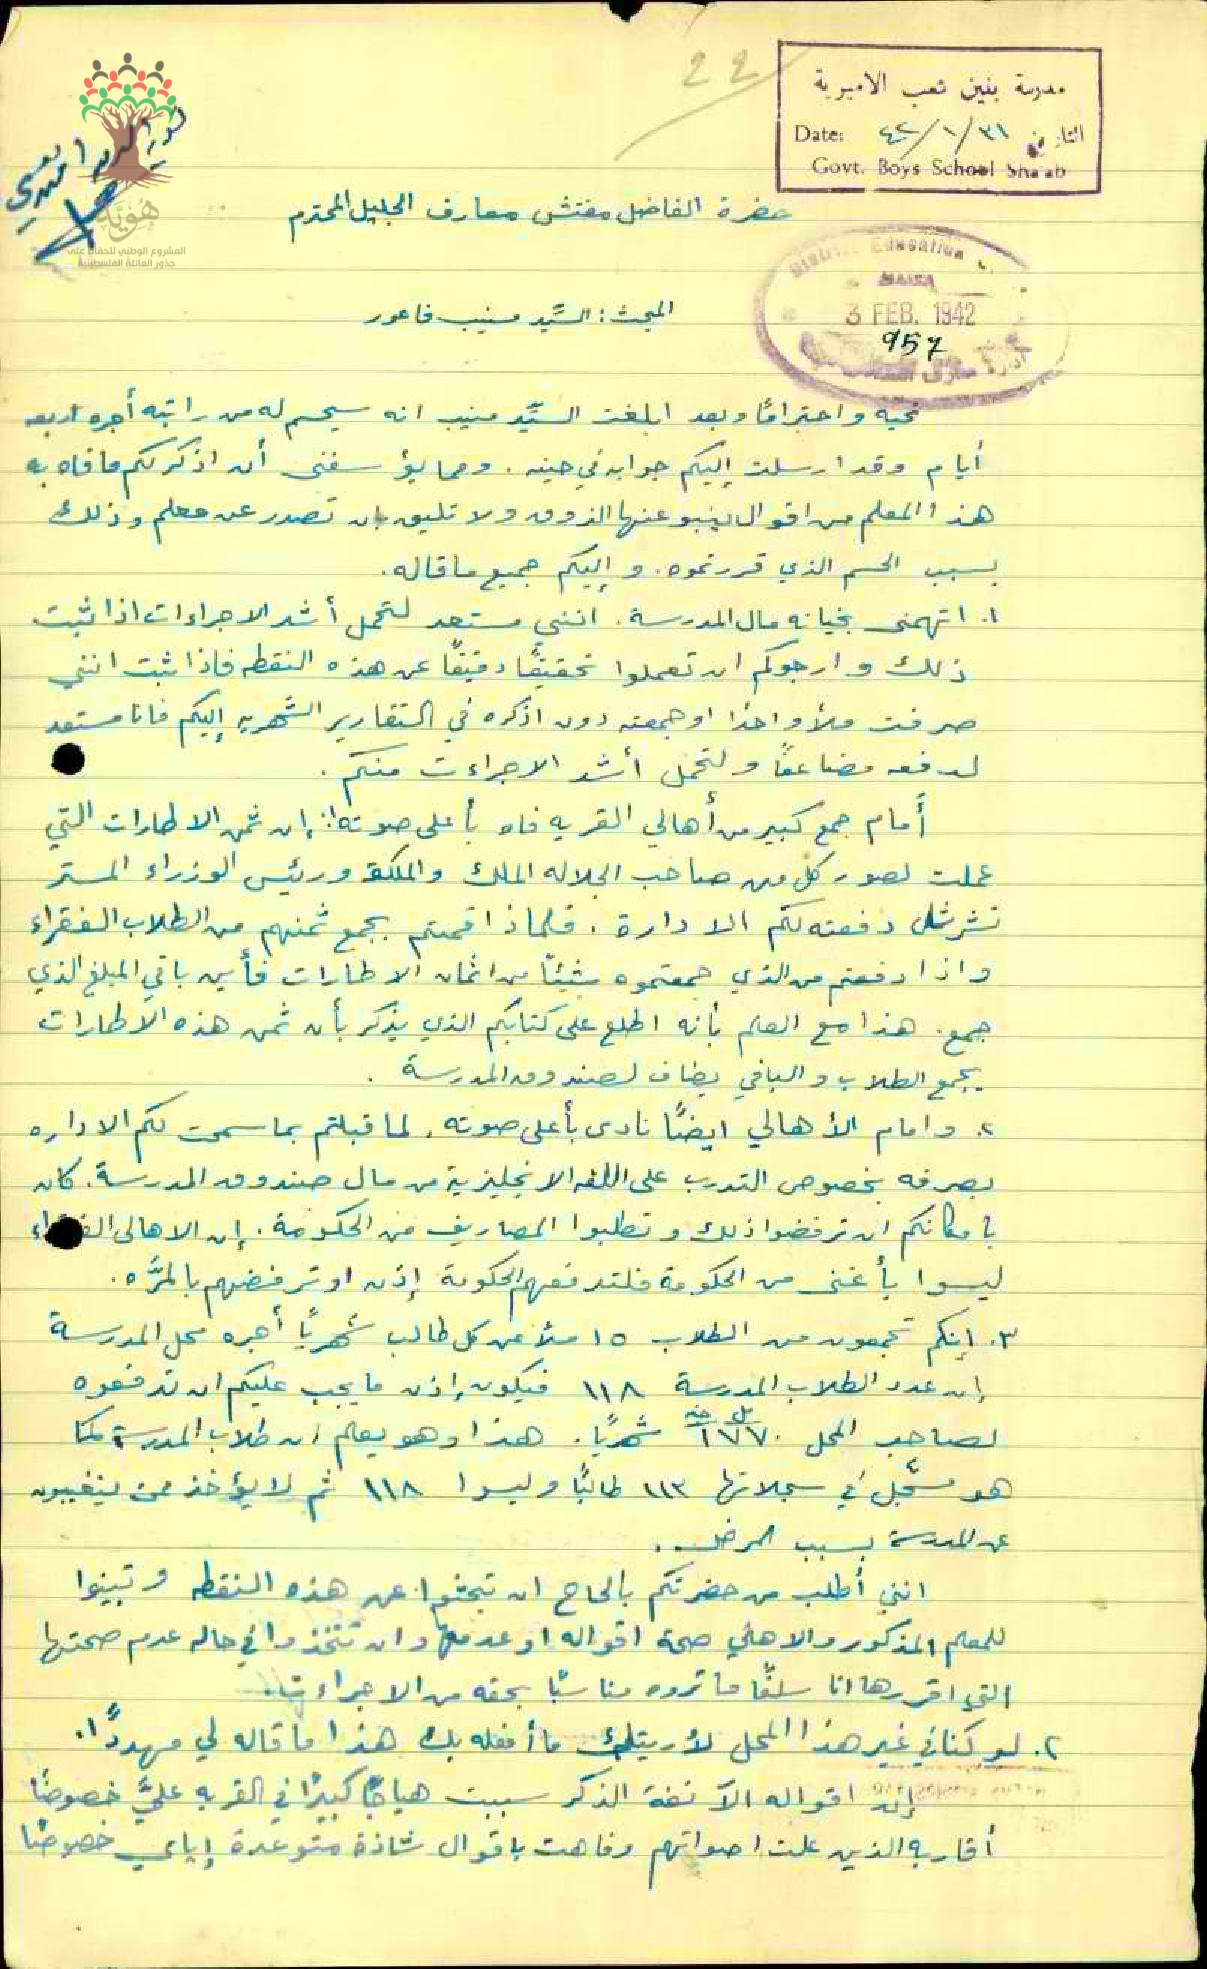 22
مدرسة بنين شعب الاميرية
Date: ٤٢/١/٣١ التاريخ
Govt. Boys School Sha'ab
نور الدين افندي
هُوِيَّة
المشروع الوطني للحفاظ على
جذور العائلة الفلسطينية
حضرة الفاضل مفتش معارف الجليل المحترم
District Education
HAIFA
3 FEB. 1942
957
ادارة معارف
المبحث: السيّد منيب فاعور
تحيه واحترامًا وبعد ابلغت السيّد منيب انه سيحسم له من راتبه أجره اربعه
أيام وقد ارسلت إليكم جوابه في حينه. ومما يؤسفني أن اذكر لكم ما فاه به
هذا المعلم من اقوال ينبو عنها الذوق ولا تليق بان تصدر عن معلم وذلك
بسبب الحسم الذي قررتموه. وإليكم جميع ما قاله.
١. اتهمني بخيانه مال المدرسة. انني مستعد لتحمل أشد الاجراءات اذا ثبت
ذلك وارجوكم ان تعملوا تحقيقًا دقيقًا عن هذه النقطه فاذا ثبت انني
صرفت ملاً واحدًا او جمعته دون اذكره في التقارير الشهريه إليكم فانا مستعد
لدفعه مضاعفًا ولتحمل أشد الاجراءت منكم.
أمام جمع كبير من أهالي القريه فاه بأعلى صوته: إن ثمن الاطارات التي
عملت لصور كل من صاحب الجلاله الملك والملكة ورئيس الوزراء المستر
تشرشل دفعته لكم الادارة. فلماذا قمتم بجمع ثمنهم من الطلاب الفقراء
واذا دفعتم من الذي جمعتموه شيئًا من اثمان الاطارات فأين باقي المبلغ الذي
جمع. هذا مع العلم بأنه اطلع على كتابكم الذي يذكر بأن ثمن هذه الاطارات
يجمع الطلاب والباقي يضاف لصندوق المدرسة.
٢. وامام الأهالي ايضًا نادى بأعلى صوته. لما قبلتم بما سمحت لكم الاداره
بصرفه بخصوص التدرب على اللغه الانجليزية من مال صندوق المدرسة. كان
بامكانكم ان ترفضوا ذلك وتطلبوا المصاريف من الحكومة. إن الاهالي الفقراء
ليسوا بأغنى من الحكومة فلتدفعهم الحكومة إذن او ترفضهم بالمرَّه.
٣. إنكم تجمعون من الطلاب ١٥ ملاً من كل طالب شهريًا أجره محل المدرسة
إن عدد الطلاب المدرسة ١١٨ فيكون إذن ما يجب عليكم ان تدفعوه
لصاحب المحل ١٧٧٠ شهريًا. هذا وهو يعلم ان طلاب المدرسة كما
هو مسجّل في سجلاتها ١١٣ طالبًا وليسوا ١١٨ ثم لا يؤخذ ممن يتغيبون
عن المدرسة بسبب المرض.
انني أطلب من حضرتكم بالحاح ان تبحثوا عن هذه النقطه وتبينوا
للمعلم المذكور والاهلي صحة اقواله او عدمها وان تتخذوا في حاله عدم صحتها
التي اقررها انا سلفًا ما تروه مناسبًا بحقه من الاجراءات.
٢. لو كنا في غير هذا المحل لأريتك ما أفعله بك هذا ما قاله لي مهددًا.
إن اقواله الآنفة الذكر سببت هياجًا كبيرًا في القريه عليَّ خصوصًا
أقاربه الذين علت اصواتهم وفاهت باقوال شاذة متوعدة إياي خصوصًا